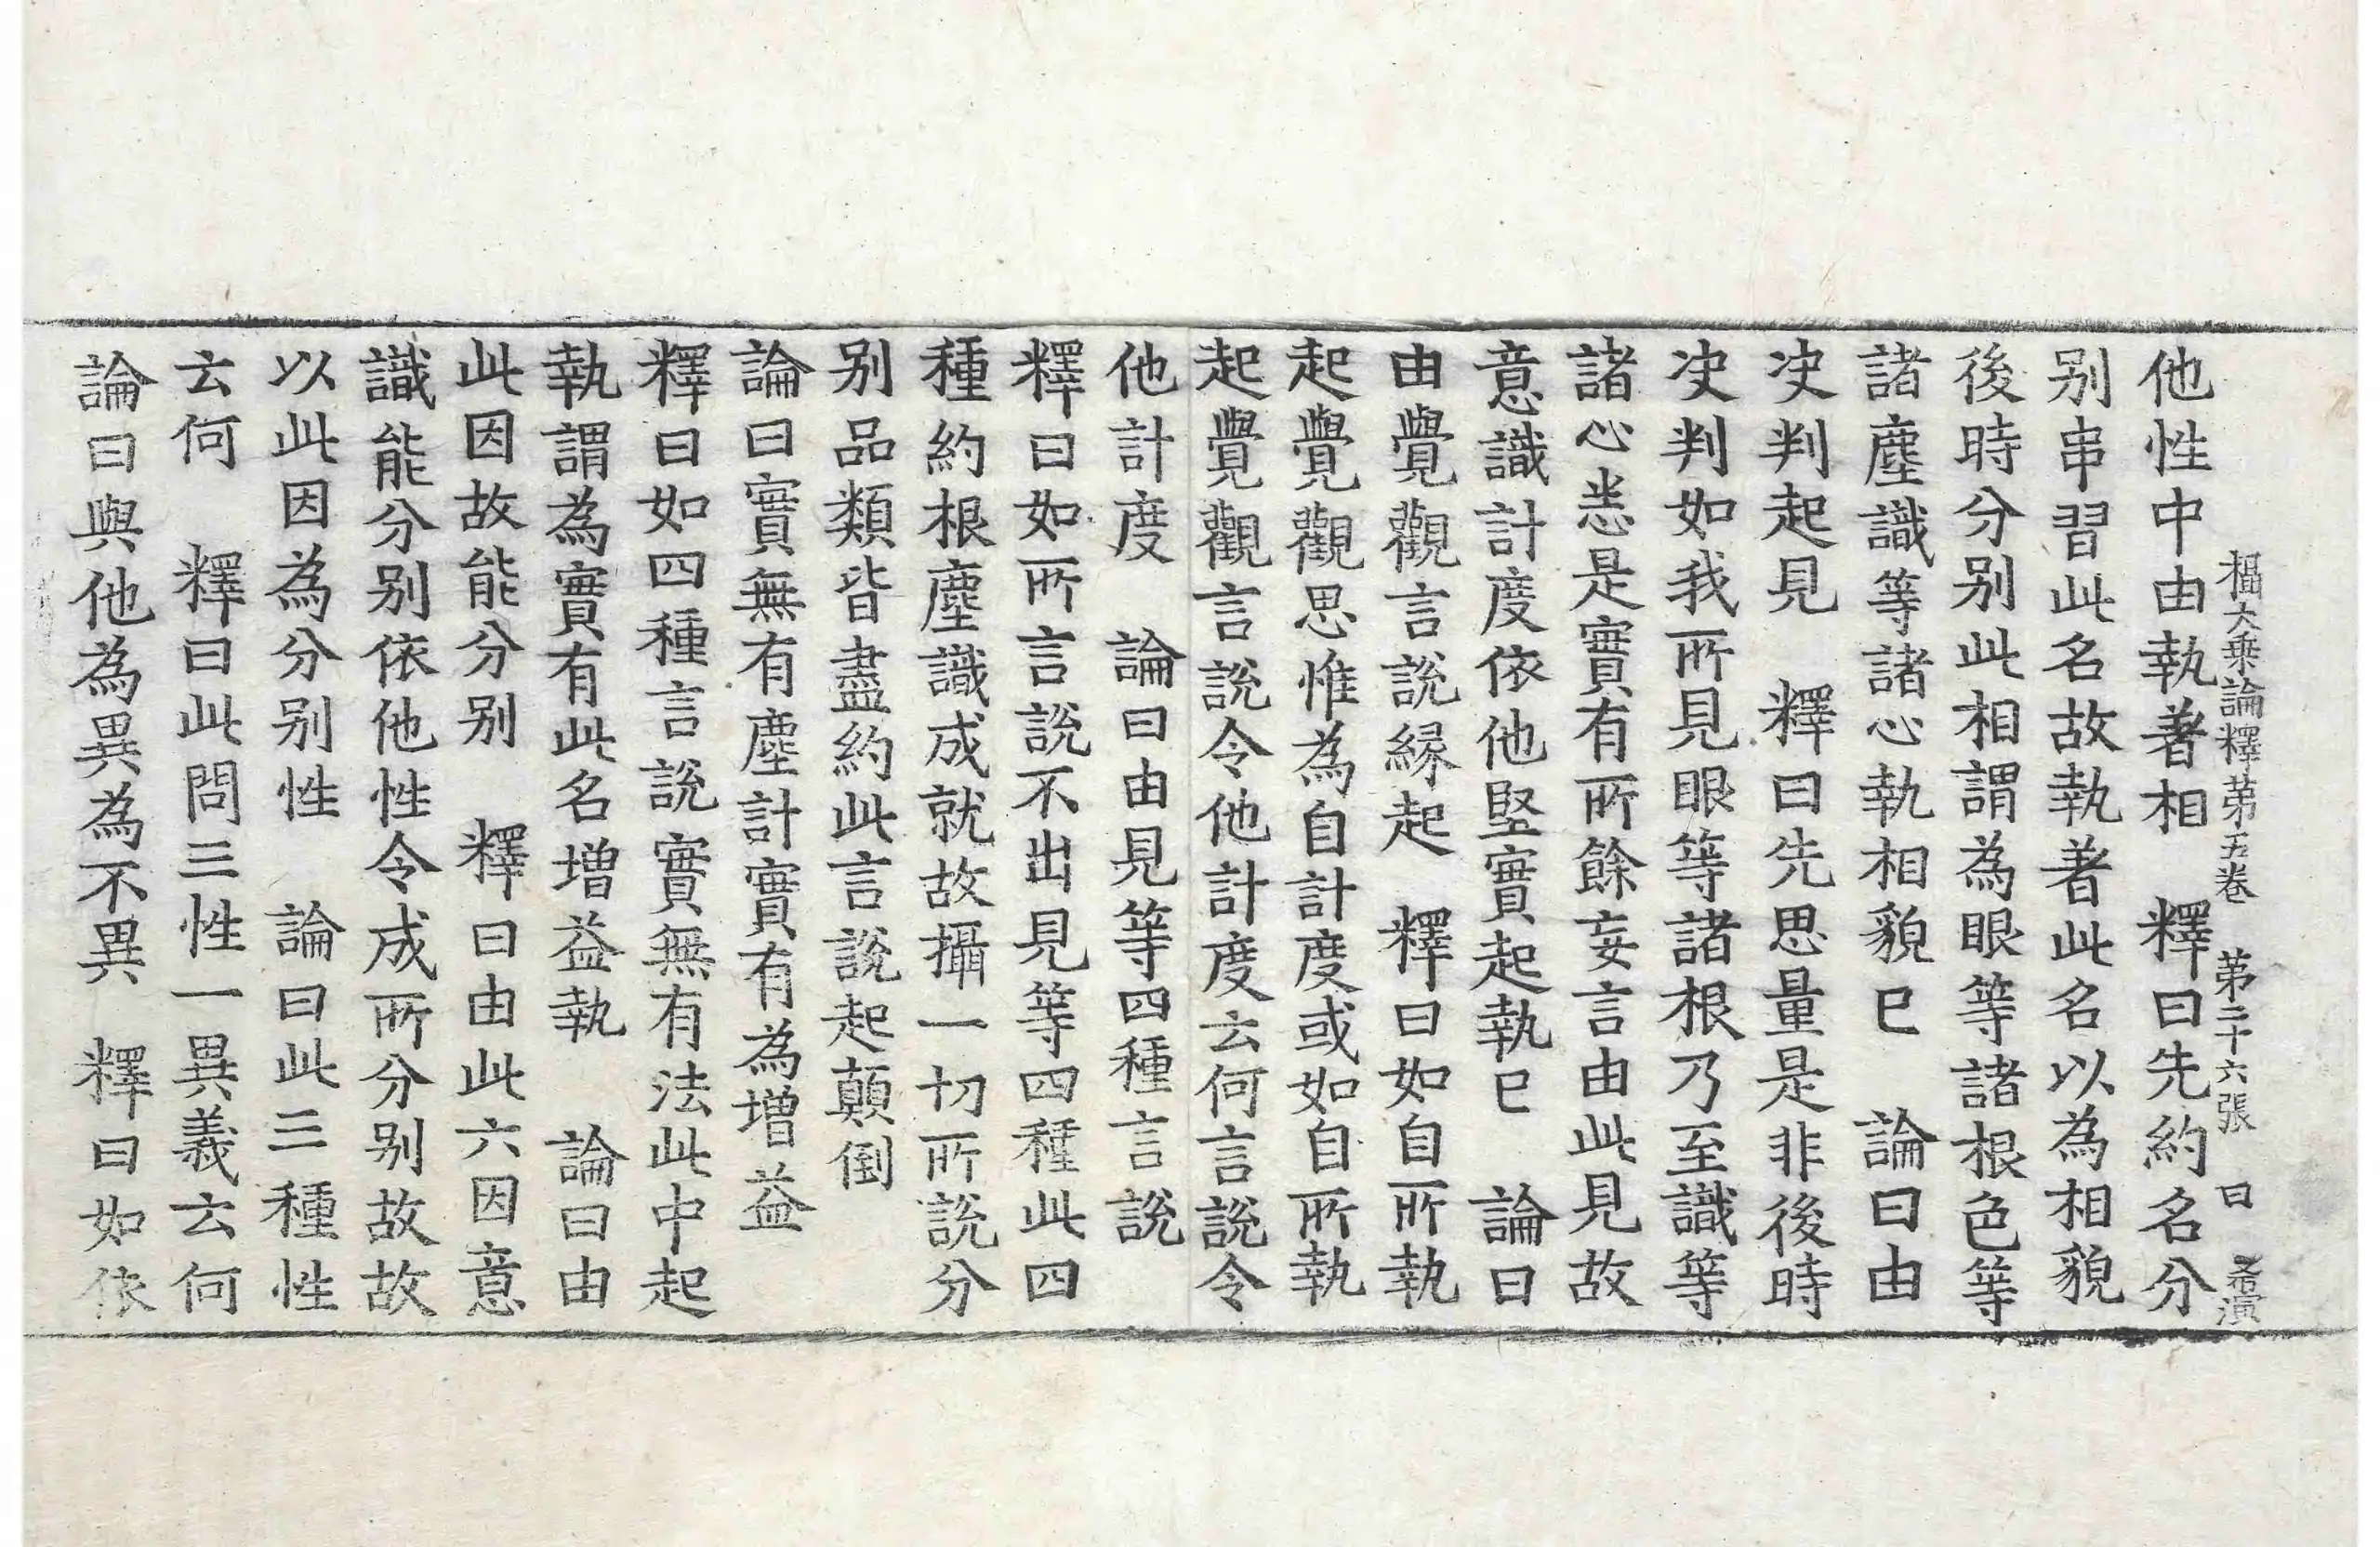 攝大乗論釋第五卷　第二十六張　曰
他性中由執著相　釋曰先約名分
别串習此名故執著此名以為相貌
後時分别此相謂為眼等諸根色等
諸塵識等諸心執相貌已　論曰由
决判起見　釋曰先思量是非後時
决判如我所見眼等諸根乃至識等
諸心悉是實有所餘妄言由此見故
意識計度依他堅實起執已　論曰
由覺觀言說緣起　釋曰如自所執
起覺觀思惟為自計度或如自所執
起覺觀言說令他計度云何言說令
他計度　論曰由見等四種言說
釋曰如所言說不出見等四種此四
種約根塵識成就故攝一切所說分
别品類皆盡約此言說起顛倒
論曰實無有塵計實有為增益
釋曰如四種言說實無有法此中起
執謂為實有此名增益執　論曰由
此因故能分别　釋曰由此六因意
識能分别依他性令成所分别故故
以此因為分别性　論曰此三種性
云何　釋曰此問三性一異義云何
論曰與他為異為不異　釋曰如依